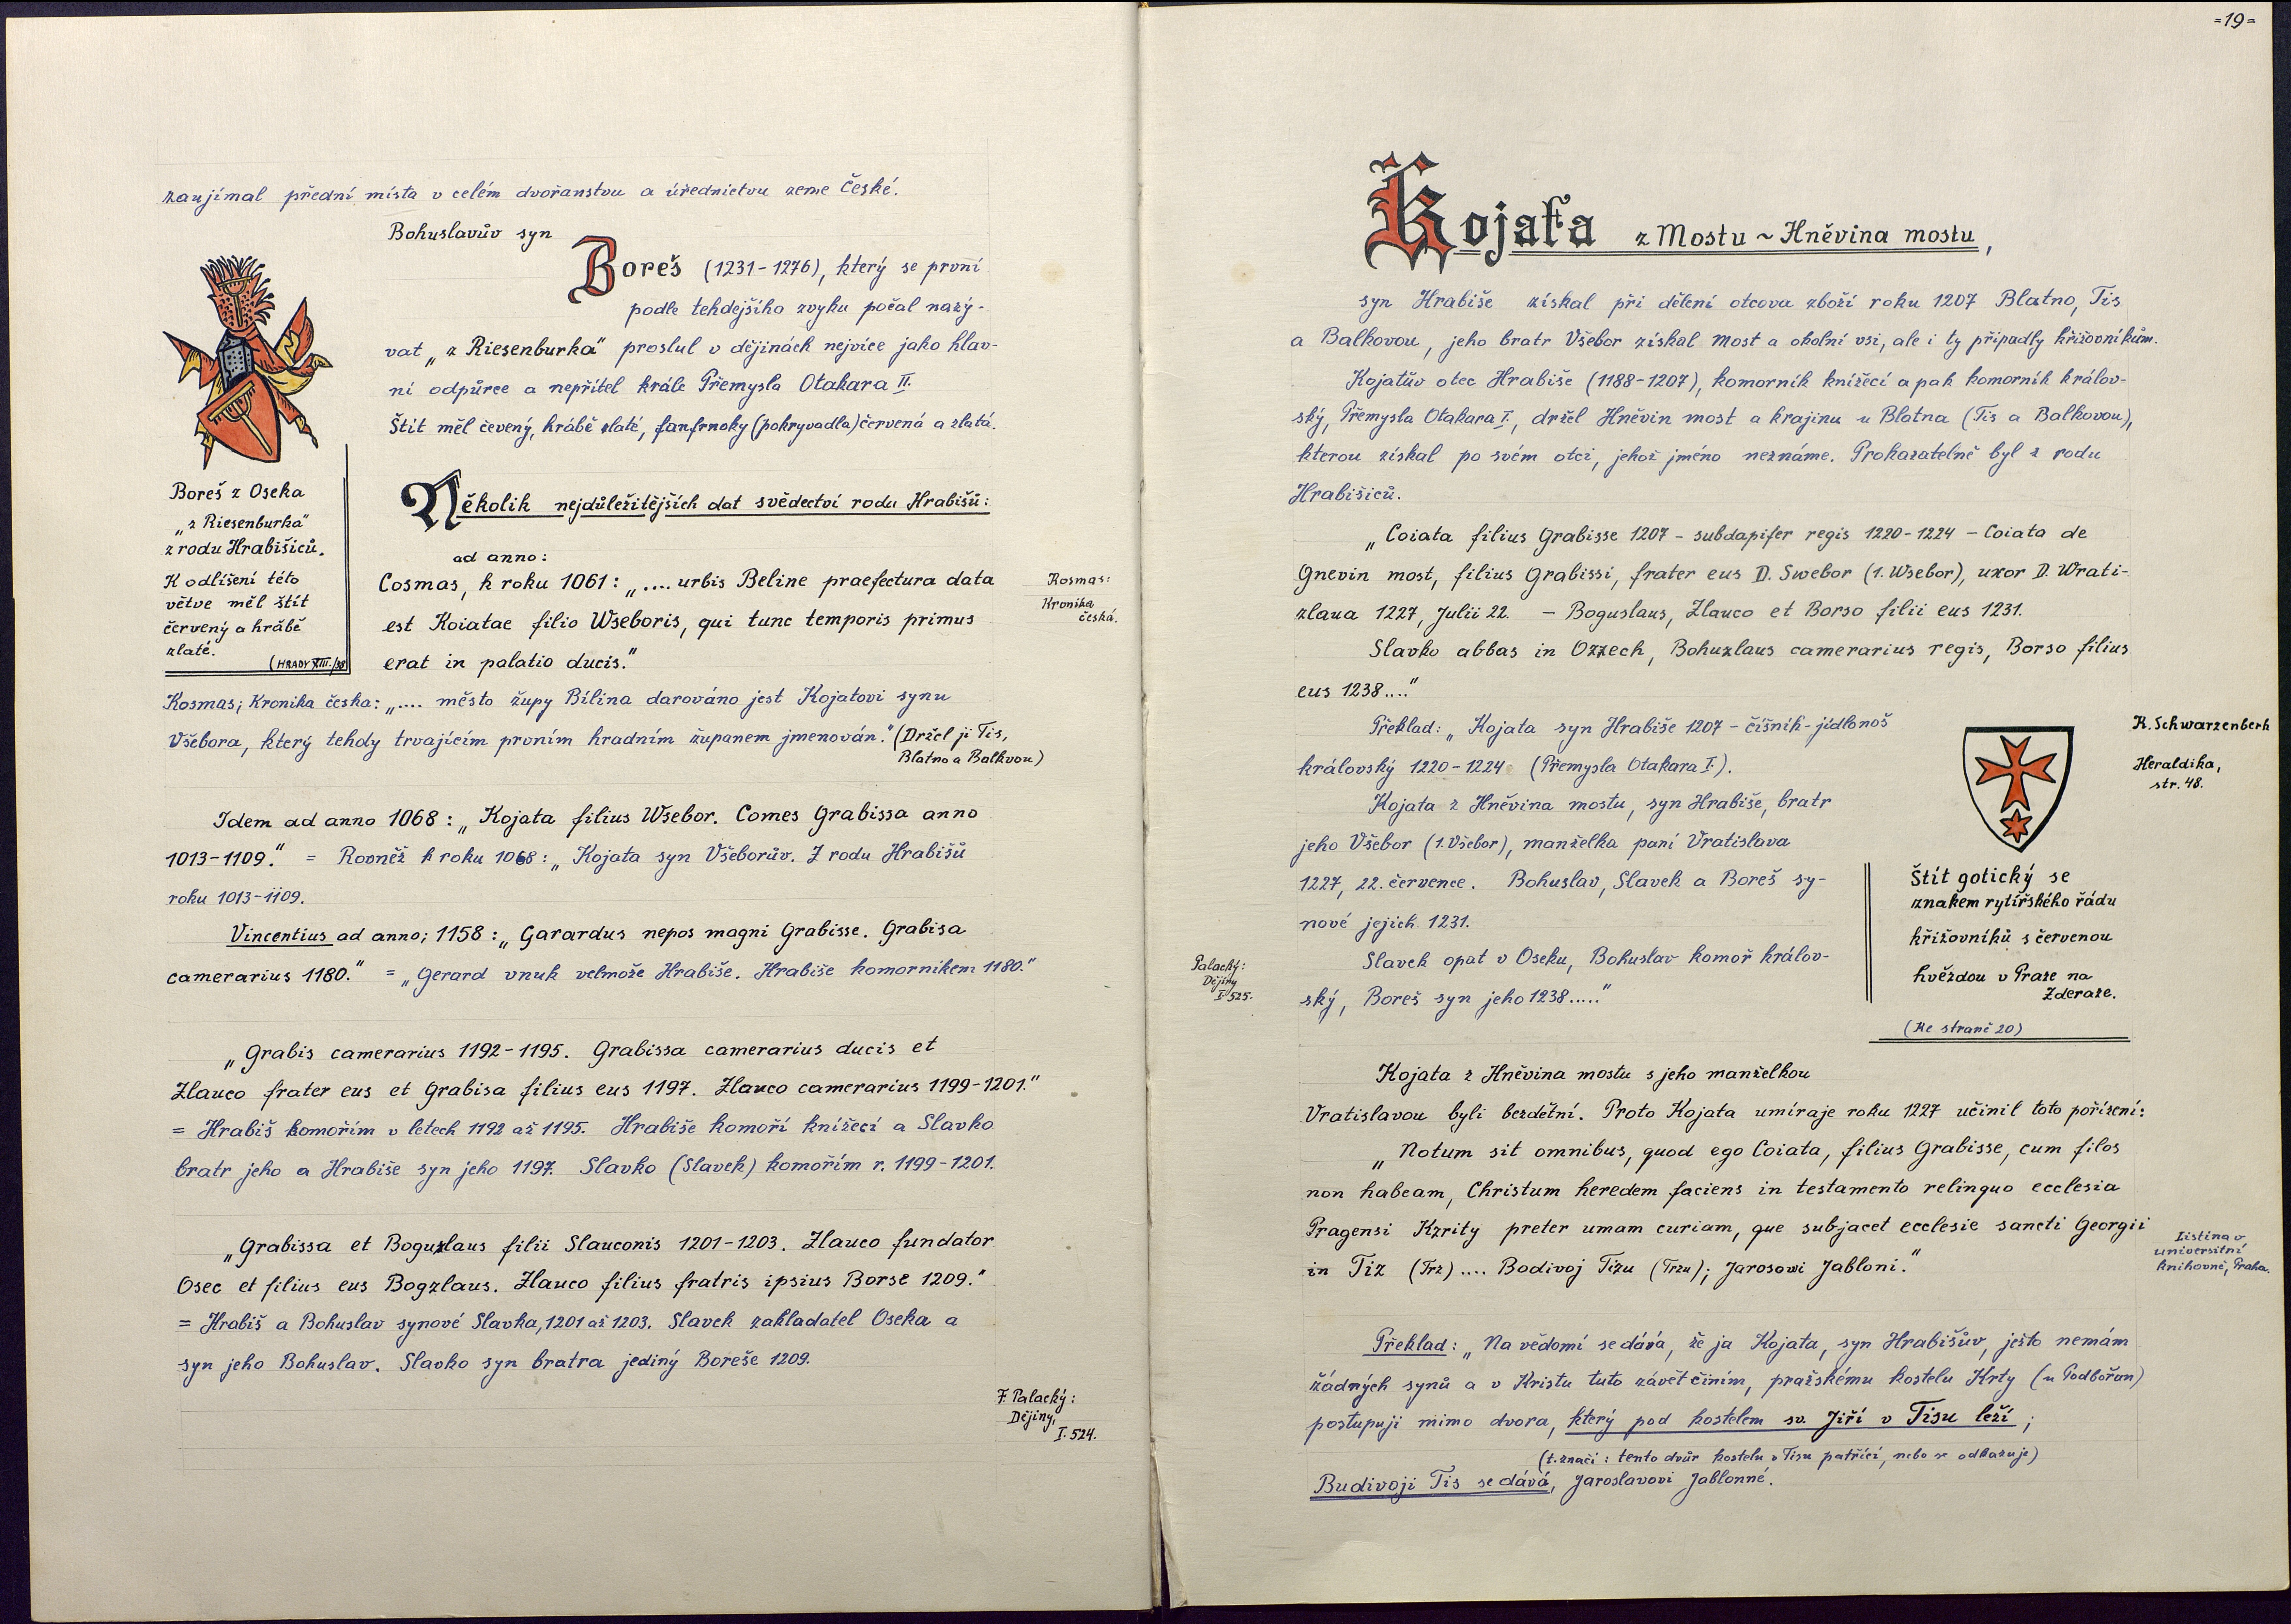 zaujímal přední místa v celém dvořanstvu a úřednictvu zeme České.
Bohuslavův syn
Boreš (1231-1276), který se první
podle tehdejšího zvyku počal nazý-
vat „z Riesenburka" proslul v dějinách nejvíce jako hlav-
ní odpůrce a nepřítel krále Přemysla Otakara II.
Štít měl čevený, hrábě zlaté, fanfrnoky (pokryvadla) červená a zlatá.
Boreš z Oseka
„z Riesenburka"
z rodu Hrabišiců.
K odlišení této
větve měl štít
červený a hrábě
zlaté.
(HRADY XIII./38
Několik nejdůležitějších dat svědectví rodu Hrabišů:
ad anno:
Cosmas, k roku 1061: „.... urbis Beline praefectura data
est Koiatae filio Wseboris, qui tunc temporis primus
erat in palatio ducis."
Kosmas:
Kronika
česká.
Kosmas; Kronika česka: „.... město župy Bílina darováno jest Kojatovi synu
Všebora, který tehdy trvajícím prvním hradním županem jmenován." (Držel ji Tis,
Blatno a Balkvou)
Idem ad anno 1068: „Kojata filius Wsebor. Comes Grabissa anno
1013-1109." = Rovněž k roku 1068: „Kojata syn Všeborův. Z rodu Hrabišů
roku 1013-1109.
Vincentius ad anno; 1158: „Garardus nepos magni Grabisse. Grabisa
camerarius 1180." = „Gerard vnuk velmože Hrabiše. Hrabiše komorníkem 1180."
„Grabis camerarius 1192-1195. Grabissa camerarius ducis et
Zlauco frater eus et Grabisa filius eus 1197. Zlauco camerarius 1199-1201."
= Hrabiš komořím v letech 1192 až 1195. Hrabiše komoří knížecí a Slavko
bratr jeho a Hrabiše syn jeho 1197. Slavko (Slavek) komořím r. 1199-1201.
„Grabissa et Boguzlaus filii Slauconis 1201-1203. Zlauco fundator
Osec et filius eus Bogzlaus. Zlauco filius fratris ipsius Borse 1209."
= Hrabiš a Bohuslav synové Slavka, 1201 až 1203. Slavek zakladatel Oseka a
syn jeho Bohuslav. Slavko syn bratra jediný Boreše 1209.
F. Palacký:
Dějiny,
I. 524.
=19=
Kojaťa z Mostu ~ Hněvina mostu,
syn Hrabiše získal při dělení otcova zboží roku 1207 Blatno, Tis
a Balkovou, jeho bratr Všebor získal Most a okolní vsi, ale i ty připadly křižovníkům.
Kojatův otec Hrabiše (1188-1207), komorník knížecí a pak komorník králov-
ský, Přemysla Otakara I., držel Hněvin most a krajinu u Blatna (Tis a Balkovou),
kterou získal po svém otci, jehož jméno neznáme. Prokazatelně byl z rodu
Hrabišiců.
„Coiata filius Grabisse 1207 - subdapifer regis 1220-1224 - Coiata de
Gnevin most, filius Grabissi, frater eus D. Swebor (1. Wsebor), uxor D. Wrati-
zlaua 1227, Julii 22. - Boguslaus, Zlauco et Borso filii eus 1231.
Slavko abbas in Ozzech, Bohuzlaus camerarius regis, Borso filius
eus 1238...."
Překlad: „Kojata syn Hrabiše 1207 - číšník - jídlonoš
královský 1220-1224 (Přemysla Otakara I.).
Kojata z Hněvina mostu, syn Hrabiše, bratr
jeho Všebor (1. Všebor), manželka paní Vratislava
1227, 22. července. Bohuslav, Slavek a Boreš sy-
nové jejich 1231.
Slavek opat v Oseku, Bohuslav komoř králov-
ský, Boreš syn jeho 1238....."
Palacký:
Dějiny
I. 525.
K. Schwarzenberk
Heraldika,
str. 48.
Štít gotický se
znakem rytířského řádu
křižovníků s červenou
hvězdou v Praze na
Zderaze.
(Ke straně 20)
Kojata z Hněvina mostu s jeho manželkou
Vratislavou byli bezdětní. Proto Kojata umíraje roku 1227 učinil toto pořízení:
„Notum sit omnibus, quod ego Coiata, filius Grabisse, cum filos
non habeam, Christum heredem faciens in testamento relinguo ecclesia
Pragensi Kzrity preter umam curiam, que subjacet ecclesie sancti Georgii
in Tiz (Trz) .... Bodivoj Tizu (Trzu); Jarosowi Jabloni."
Listina v
universitní
knihovně, Praha.
Překlad: „Na vědomí se dává, že ja Kojata, syn Hrabišův, ješto nemám
žádných synů a v Kristu tuto závěť činím, pražskému kostelu Krty (u Podbořan)
postupuji mimo dvora, který pod kostelem sv. Jiří v Tisu leží;
(t. značí: tento dvůr kostelu v Tisu patřící, nebo se odkazuje)
Budivoji Tis se dává, Jaroslavovi Jablonné.